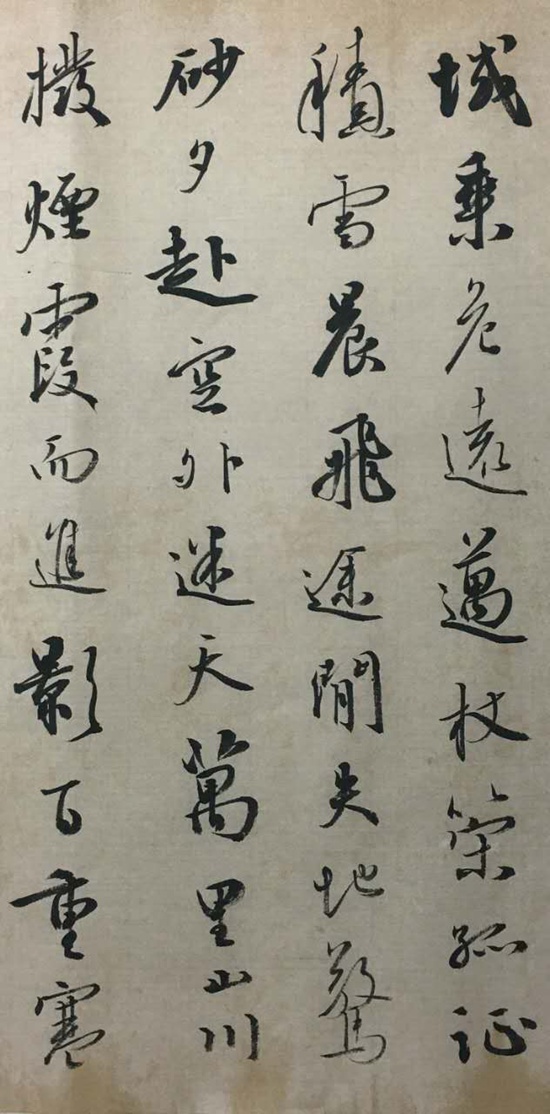 域乘危遠邁杖策孤征
積雪晨飛途閒失地驚
砂夕赴空外迷天萬里山川
撥煙霞而進影百重寒